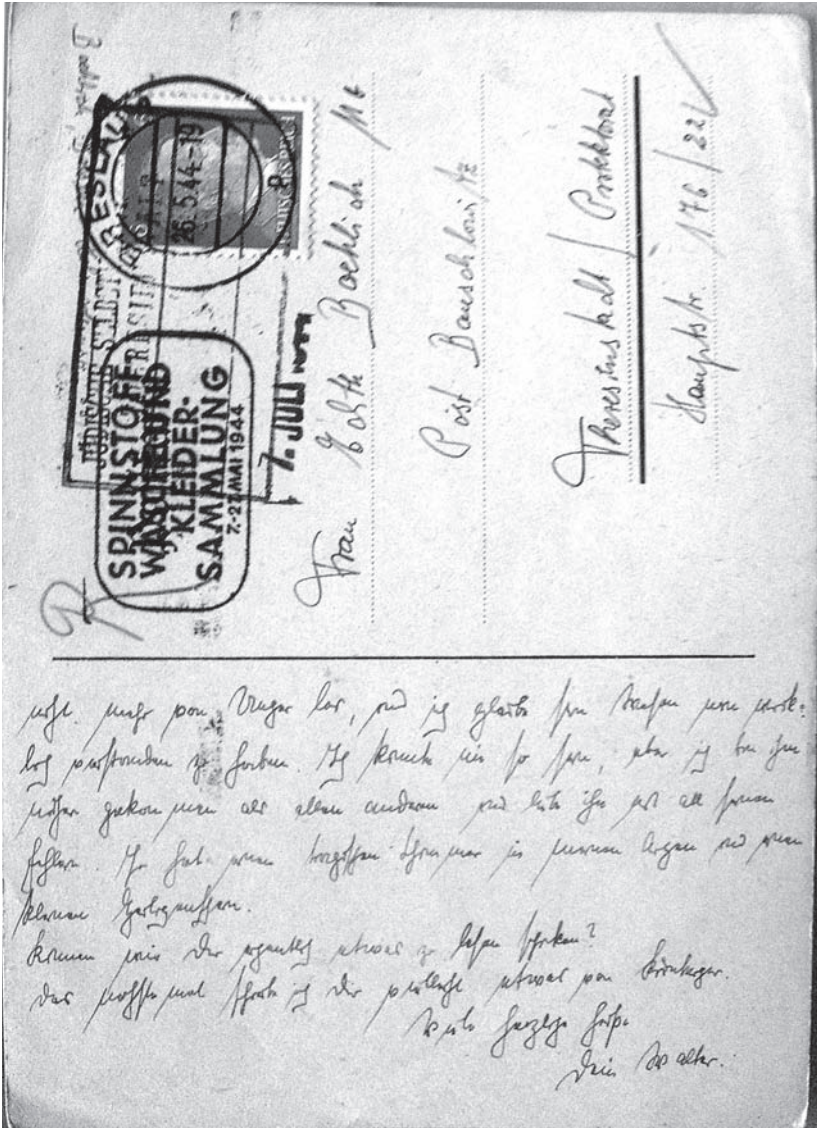 BRESLAU
26.5.44-19
DEUTSCHES REICH
SPINNSTOFF
WÄSCHE UND
KLEIDER-
SAMMLUNG
7.-27. MAI 1944
7. JULI
Frau Edith Boehlich
Post Bauschowitz
Theresienstadt / Protektorat
Hauptstr. 176/22
mehr von Unger las, und ich glaube sein Wesen nun wirk-
lich verstanden zu haben. Ich könnte nie so sein, aber ich bin ihm
näher gekommen als allen anderen und liebe ihn mit all seinen
Fehlern. Er hat einen tragischen Schimmer in meinen Augen und
kleinen
Können wir Dir eigentlich etwas zu lesen schicken?
Das nächste mal schreibe ich Dir vielleicht etwas von Kürnberger.
Viele herzliche Grüße
Dein Walter.